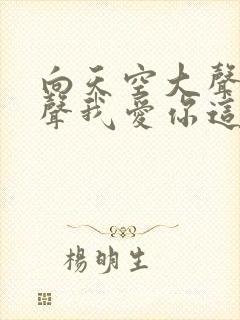 向天空大聲
聲我愛你這
楊明生